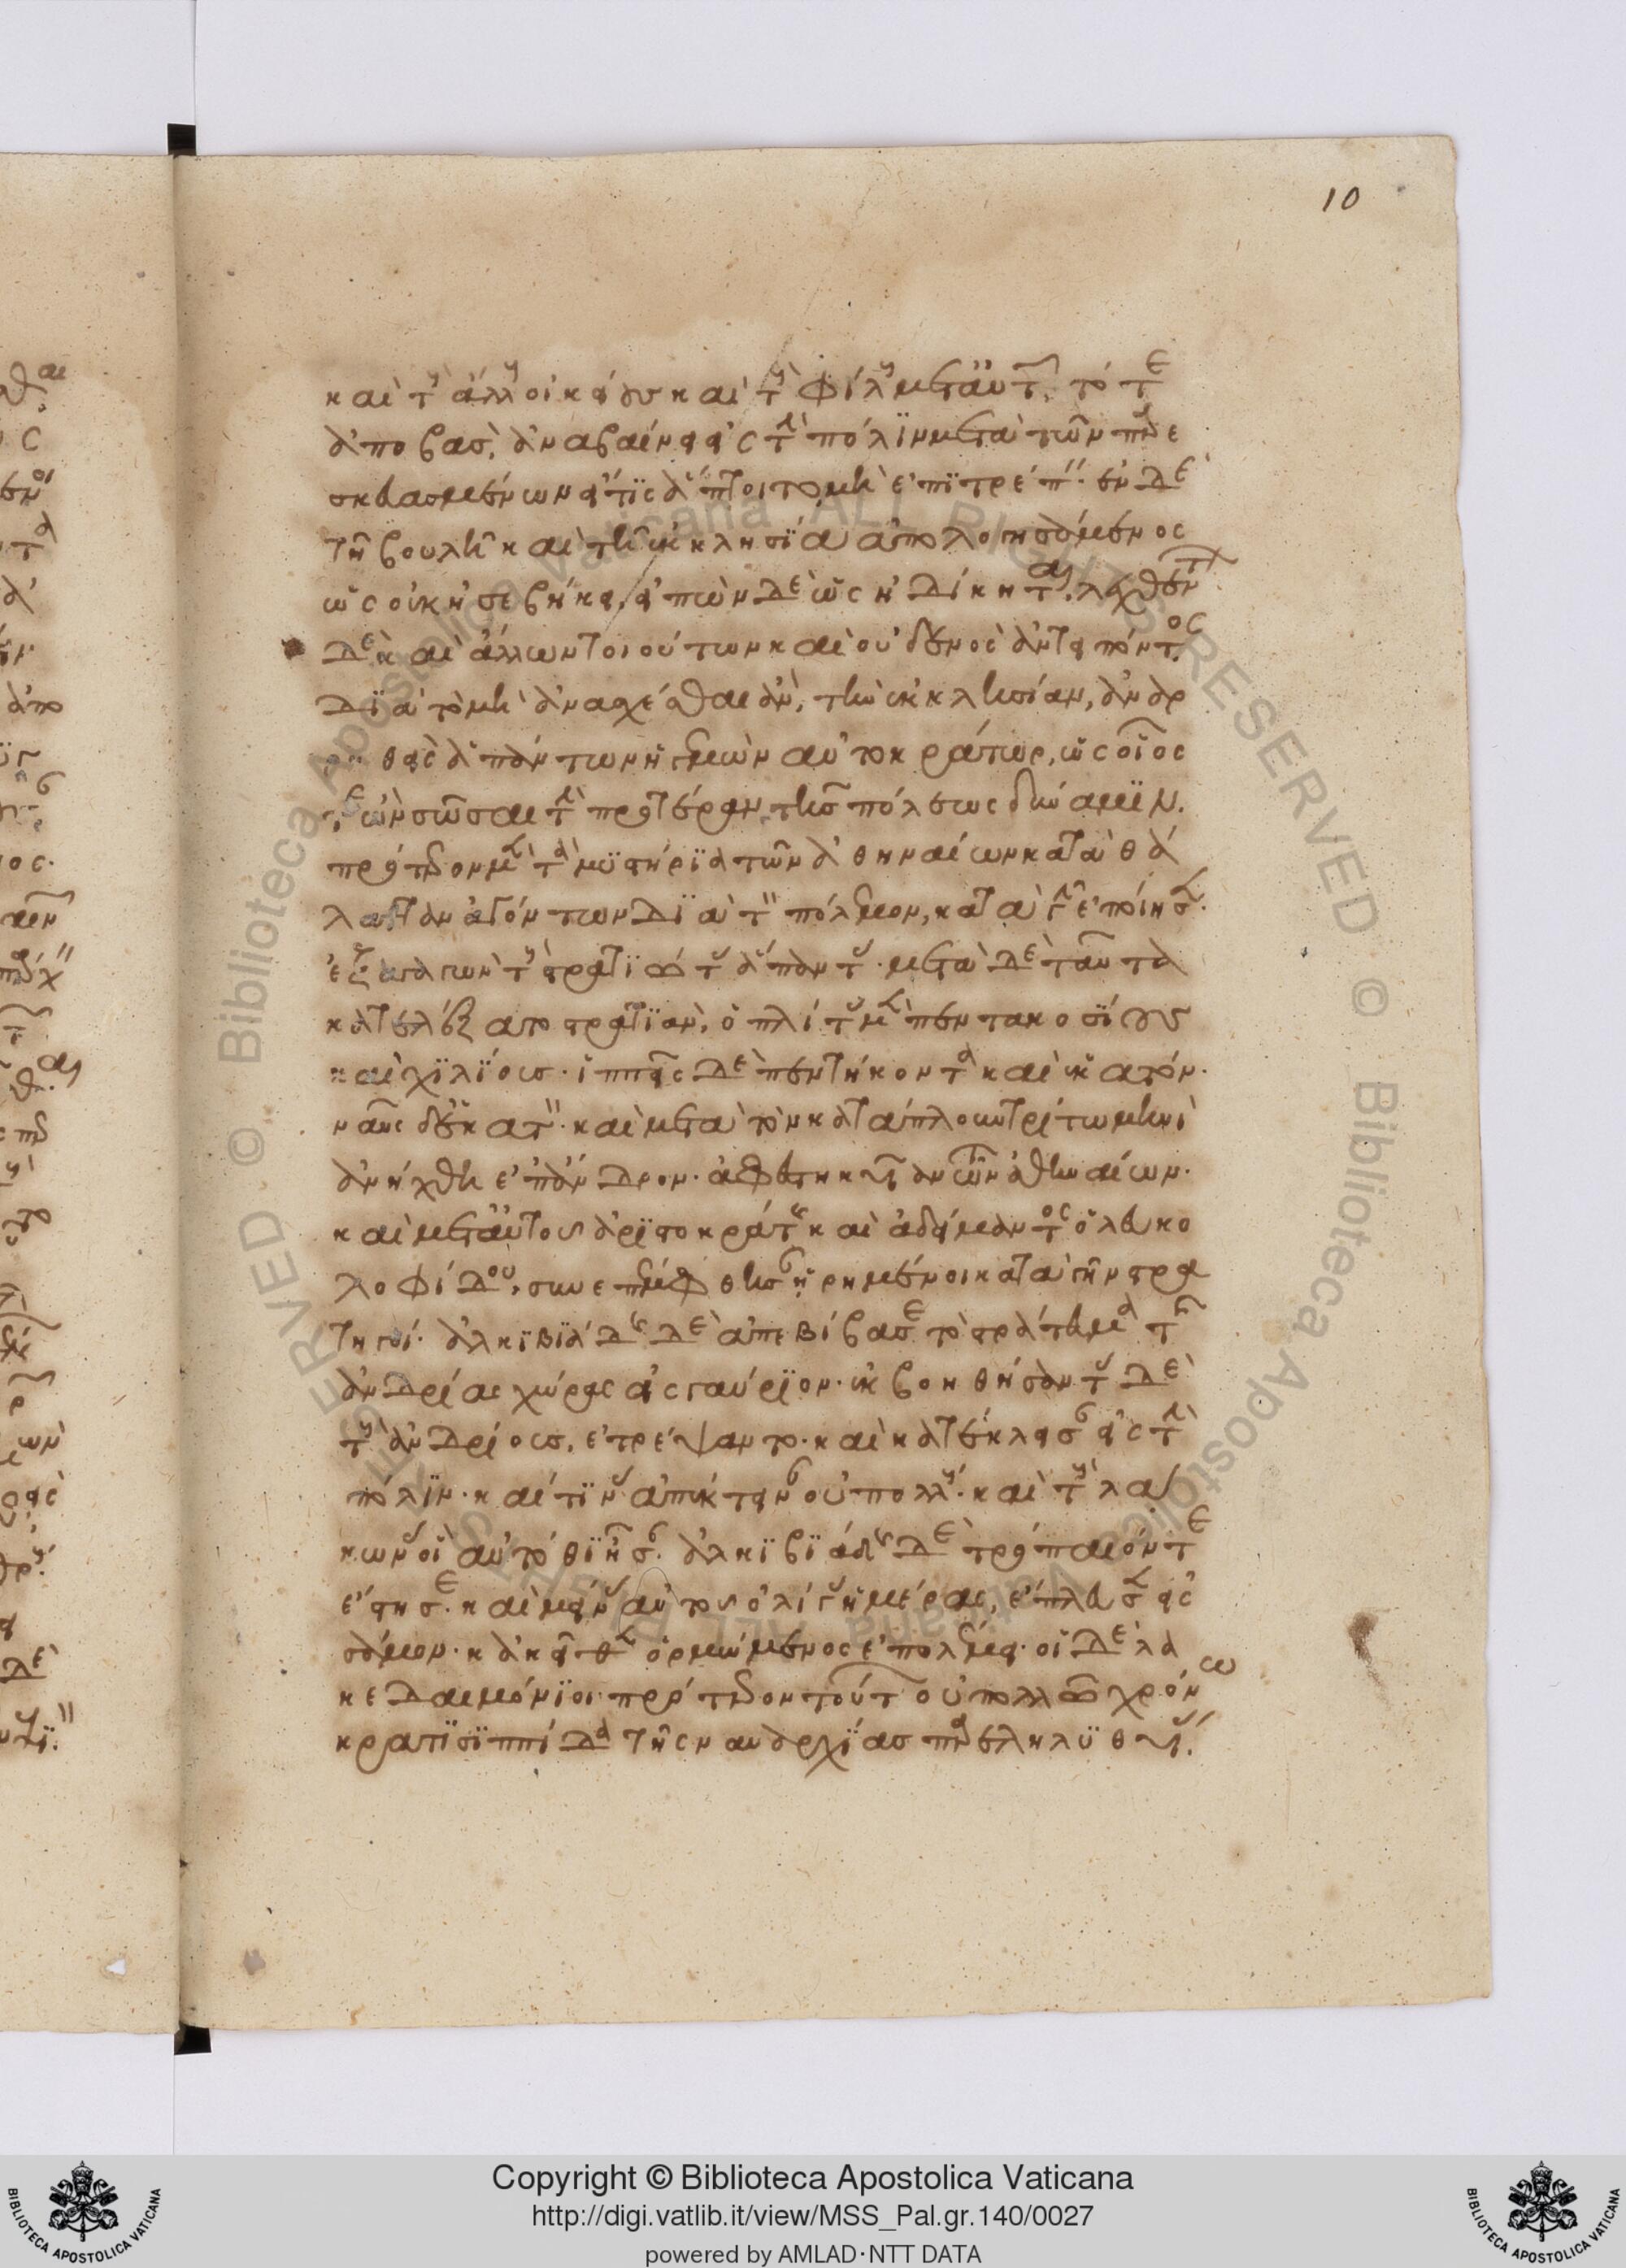 10
καὶ τοὺς ἄλλους οἰκείους καὶ τοὺς φίλους μετ' αὐτῶν, τότε
ἀποβὰς, ἀναβαίνει εἰς τὴν πόλιν μετὰ τῶν παρε
σκευασμένων εἴ τις ἅπτοιτο μὴ ἐπιτρέπειν. ἐν δὲ
τῇ βουλῇ καὶ τῇ ἐκκλησίᾳ ἀπολογησάμενος
ὡς οὐκ ἠσεβήκει, εἰπὼν δὲ ὡς ἠδίκηται, λεχθέντων
δὲ καὶ ἄλλων τοιούτων καὶ οὐδενὸς ἀντειπόντος
διὰ τὸ μὴ ἀνασχέσθαι ἂν, τὴν ἐκκλησίαν, ἀναρ
ρηθεὶς ἁπάντων ἡγεμὼν αὐτοκράτωρ, ὡς οἷος
τε ὢν σῶσαι τὴν προτέραν τῆς πόλεως δύναμιν.
πρότερον μὲν τὰ μυστήρια τῶν ἀθηναίων κατὰ θά
λατταν ἀγόντων διὰ τὸν πόλεμον, κατὰ γῆν ἐποίησεν.
ἐξαγαγὼν τοὺς στρατιώτας ἅπαντας. μετὰ δὲ ταῦτα
κατελέξατο στρατιὰν, ὁπλίτας μὲν πεντακοσίους
καὶ χιλίους. ἱππεῖς δὲ πεντήκοντα καὶ ἑκατόν.
ναῦς δ' ἑκατόν. καὶ μετὰ τὸν κατάπλουν τρίτῳ μηνὶ
ἀνήχθη ἐπ' ἄνδρον. ἀφεστηκυῖαν τῶν ἀθηναίων.
καὶ μετ' αὐτοῦ ἀριστοκράτης καὶ ἀδείμαντος ὁ λευκο
λοφίδου, συνεπέμφθησαν ᾑρημένοι κατὰ γῆν στρα
τηγοί. ἀλκιβιάδης δὲ ἀπεβίβασε τὸ στράτευμα τῆς
ἀνδρίας χώρας εἰς γαύριον. ἐκβοηθήσαντας δὲ
τοὺς ἀνδρίους, ἐτρέψαντο. καὶ κατέκλεισαν εἰς τὴν
πόλιν. καί τινας ἀπέκτειναν οὐ πολλούς. καὶ τοὺς λά
κωνας οἳ αὐτόθι ἦσαν. ἀλκιβιάδης δὲ τρόπαιόν τε
ἔστησε. καὶ μείνας αὐτοῦ ὀλίγας ἡμέρας, ἔπλευσεν εἰς
σάμον. κἀκεῖθεν ὁρμώμενος ἐπολέμει. οἱ δὲ λα
κεδαιμόνιοι πρότερον τούτων οὐ πολλῷ χρόνῳ
κρατησιππίδᾳ τῆς ναυαρχίας παρεληλυθυίας.